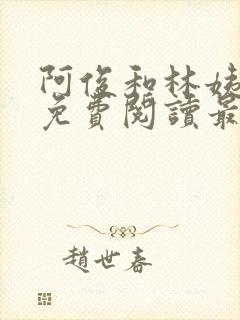 阿俊和林姨
免費閱讀最
趙世春